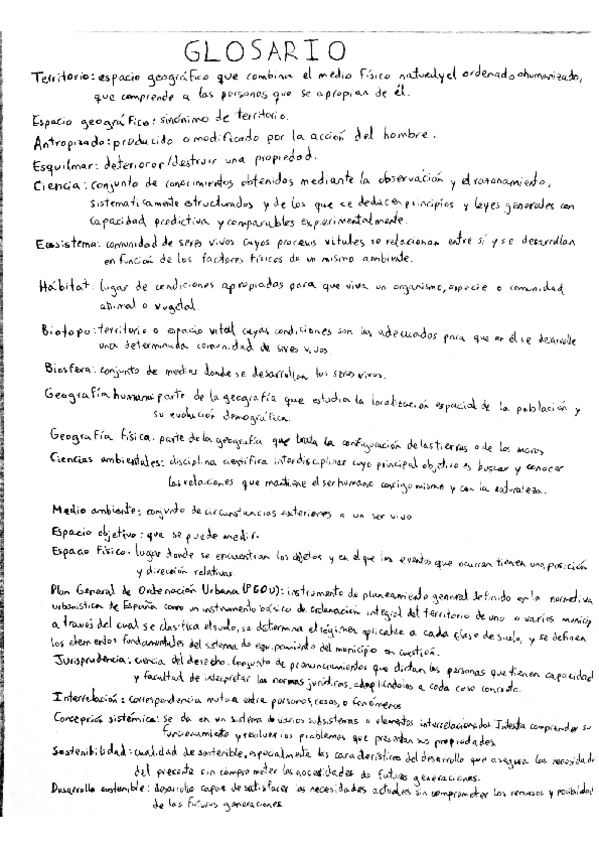 GLOSARIO
Territorio: espacio geográfico que combina el medio físico natural y el ordenado o humanizado,
que comprende a las personas que se apropian de él.
Espacio geográfico: sinónimo de territorio.
Antropizado: producido o modificado por la acción del hombre.
Esquilmar: deteriorar/destruir una propiedad.
Ciencia: conjunto de conocimientos obtenidos mediante la observación y el razonamiento,
sistematicamente estructurados y de los que se deducen principios y leyes generales con
capacidad predictiva y comparables experimentalmente.
Ecosistema: comunidad de seres vivos cuyos procesos vitales se relacionan entre sí y se desarrollan
en función de los factores físicos de un mismo ambiente.
Hábitat: lugar de condiciones apropiadas para que viva un organismo, especie o comunidad
animal o vegetal.
Biotopo: territorio o espacio vital cuyas condiciones son las adecuadas para que en él se desarrolle
una determinada comunidad de seres vivos.
Biosfera: conjunto de medios donde se desarrollan los seres vivos.
Geografía humana: parte de la geografía que estudia la localización espacial de la población y
su evolución demográfica.
Geografía física: parte de la geografía que trata la configuración de las tierras o de los mares
Ciencias ambientales: disciplina científica interdisciplinar cuyo principal objetivo es buscar y conocer
las relaciones que mantiene el ser humano consigo mismo y con la naturaleza.
Medio ambiente: conjunto de circunstancias exteriores a un ser vivo
Espacio objetivo: que se puede medir.
Espacio físico: lugar donde se encuentran los objetos y en el que los eventos que ocurren tienen una posición
y dirección relativas.
Plan General de Ordenación Urbana (PGOU): instrumento de planeamiento general definido en la normativa
urbanística de España como un instrumento básico de ordenación integral del territorio de uno o varios municip
a través del cual se clasifica el suelo, se determina el régimen aplicable a cada clase de suelo, y se definen
los elementos fundamentales del sistema de equipamiento del municipio en cuestión.
Jurisprudencia: ciencia del derecho. Conjunto de pronunciamientos que dictan las personas que tienen capacidad
y facultad de interpretar las normas jurídicas, adaptándolas a cada caso concreto.
Interrelación: correspondencia mutua entre personas, cosas, o fenómenos
Concepción sistémica: se da en un sistema de varios subsistemas o elementos interrelacionados Intenta comprender su
funcionamiento y resolver los problemas que presentan sus propiedades.
Sostenibilidad: cualidad de sostenible, especialmente las características del desarrollo que asegura las necesidade
del presente sin comprometer las necesidades de futuras generaciones.
Desarrollo sostenible: desarrollo capaz de satisfacer las necesidades actuales sin comprometer los recursos y posibilidad
de las futuras generaciones